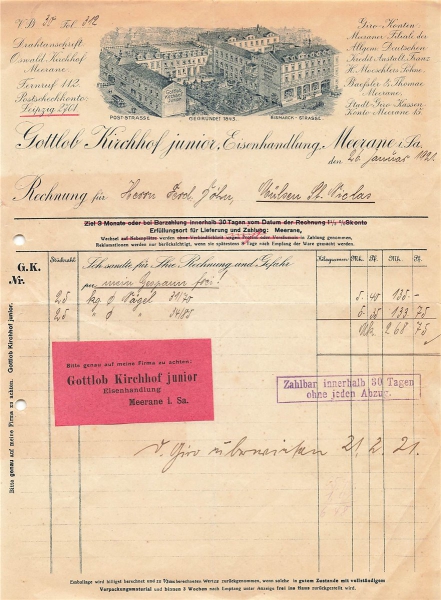 V.B. 30 Fol. 312
Drahtanschrift
Oswald Kirchhof
Meerane
Fernruf 112.
Postscheckkonto:
Leipzig 2961
Giro-Konten
Meeraner Filiale der
Allgem. Deutschen
Kredit-Anstalt, Franz
H. Moeschlers Söhne,
Baessler & Thomas
Meerane.
Stadt-Giro-Kassen-
Konto Meerane 15
POST-STRASSE
GEGRÜNDET 1843.
BISMARCK-STRASSE.
Gottlob Kirchhof junior, Eisenhandlung, Meerane i. Sa.
den 20. Januar 1921.
Rechnung für Herrn Ferd. Jöhn, Mülsen St. Niclas
Ziel 3 Monate oder bei Barzahlung innerhalb 30 Tagen vom Datum der Rechnung 1½ % Skonto
Erfüllungsort für Lieferung und Zahlung: Meerane,
Reklamationen werden nur berücksichtigt, wenn sie spätestens 8 Tage nach Empfang der Ware gemacht werden.
G.K.
Nr.
Stückzahl
Ich sandte für Ihre Rechnung und Gefahr
Kilogramm
Mk.
Pf.
Mk.
Pf.
mein Gespann frei:
25 kg Nägel 31/70 5.40 135.-
25 " " 34/85 5.35 133 75
Mk. 268 75
Bitte genau auf meine Firma zu achten:
Gottlob Kirchhof junior
Eisenhandlung
Meerane i. Sa.
Zahlbar innerhalb 30 Tagen
ohne jeden Abzug.
d. Giro überwiesen 21.2.21.
Bitte genau auf meine Firma zu achten: Gottlob Kirchhof junior.
Emballage wird billigst berechnet und zu ⅔ des berechneten Wertes zurückgenommen, wenn solche in gutem Zustande mit vollständigem
Verpackungsmaterial und binnen 3 Wochen nach Empfang unter Anzeige frei ins Haus zurückgestellt wird.